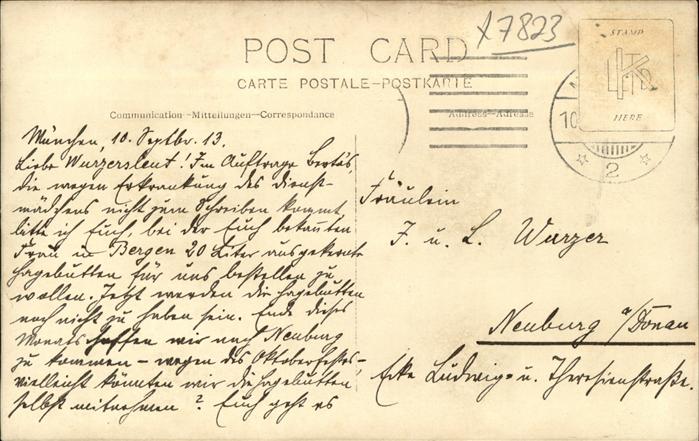 x7823
POST CARD
CARTE POSTALE–POSTKARTE
STAMP
HERE
Communication–Mitteilungen–Correspondance
Address–Adresse
10
2
München, 10. Septbr. 13.
Liebe Wurzersleut! Im Auftrage Berta's,
die wegen Erkrankung des Dienst-
mädchens nicht zum Schreiben kommt,
bitte ich Euch, bei der Euch bekannten
Frau in Bergen 20 Liter ausgekernte
Hagebutten für uns bestellen zu
wollen. Jetzt werden die Hagebutten
noch nicht zu haben sein. Ende dieses
Monats hoffen wir nach Neuburg
zu kommen – wegen des Oktoberfestes –
vielleicht könnten wir die Hagebutten
selbst mitnehmen? Euch geht es
Fräulein
F. u. L. Wurzer
Neuburg a/Donau
Ecke Ludwig- u. Theresienstraße.